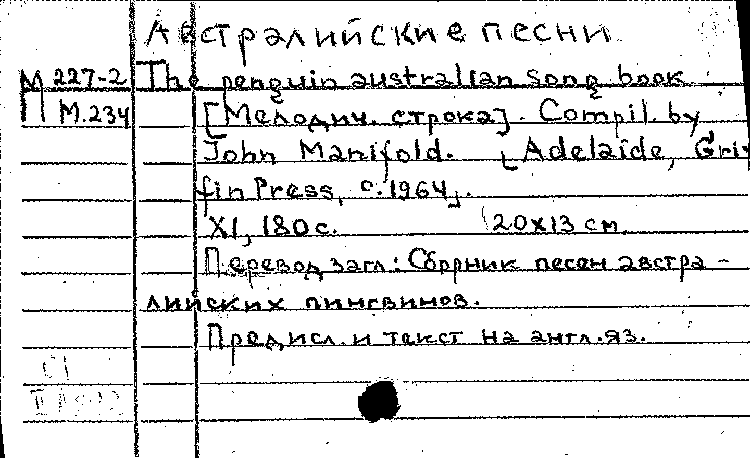 Австралийские песни
М 227-2 The penguin australian song book
П М.234 [Мелодич. строка]. Compil. by
John Manifold. [Adelaide, Grif
fin Press, c. 1964].
XI, 180 с. 20x13 см
Перевод загл.: Сборник песен австра-
лийских пингвинов.
Предисл. и текст на англ. яз.